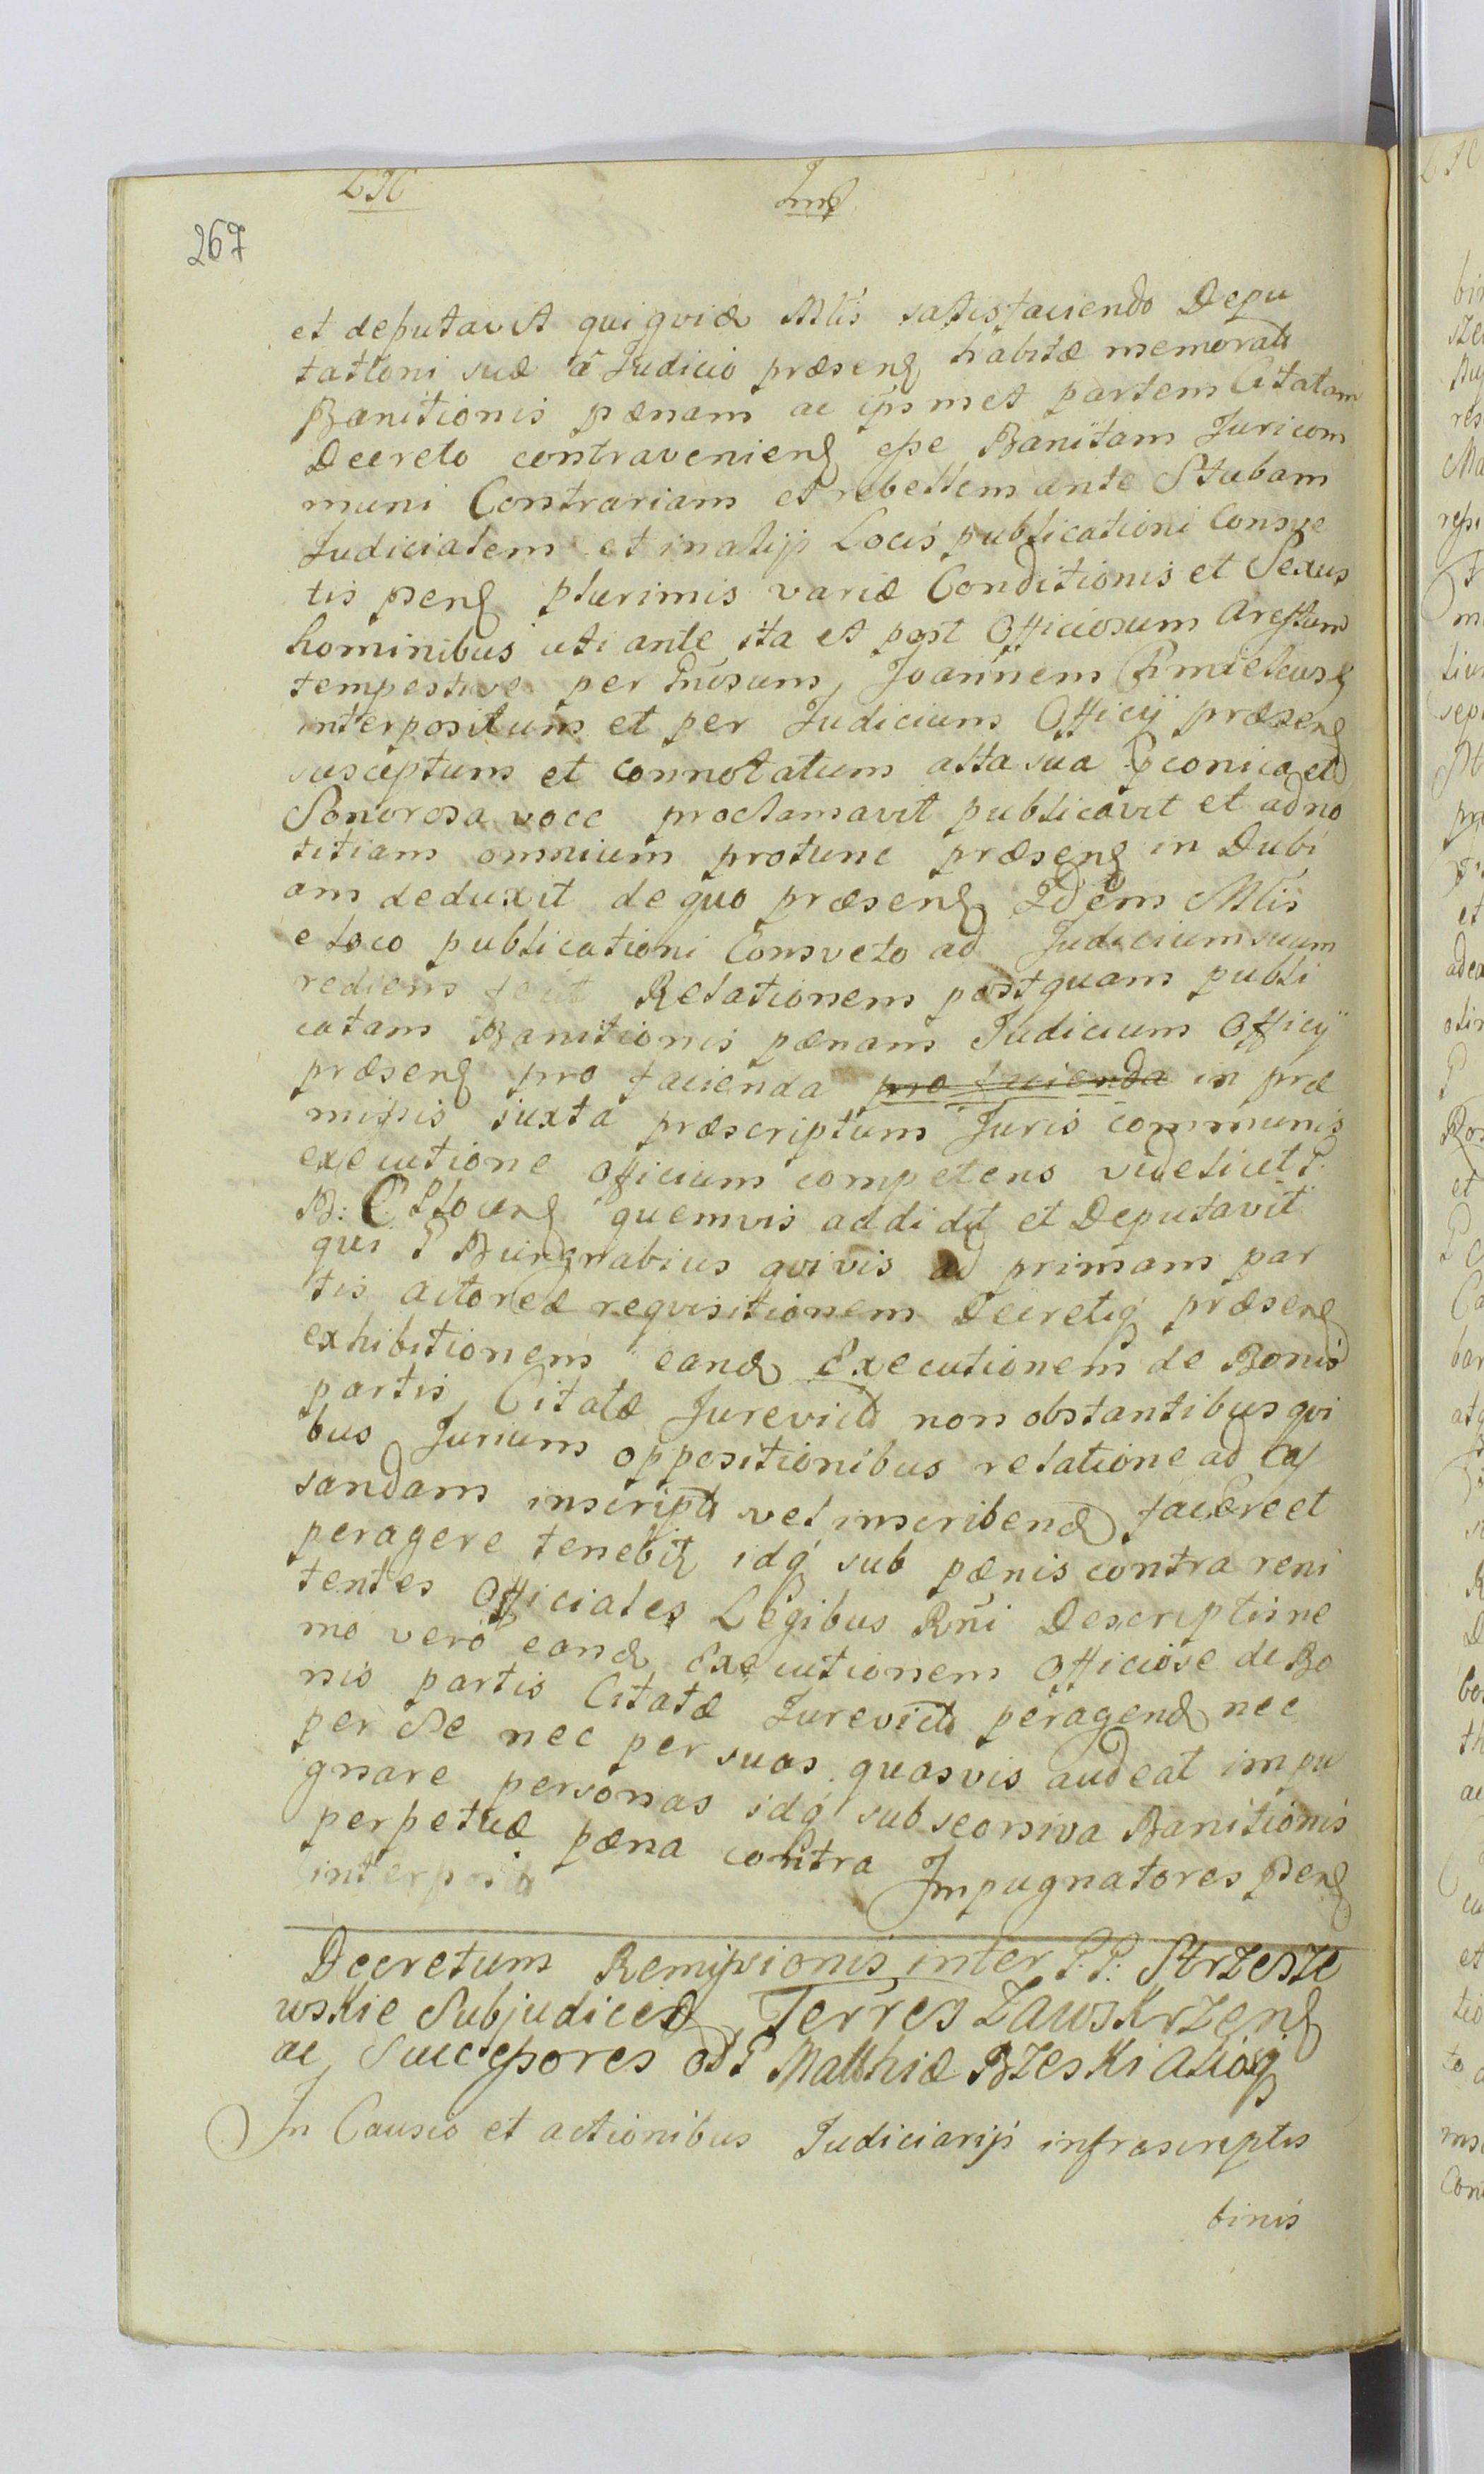 267
et deputavit qui quidē Mlis satisfaciendo Depu
tationi suæ a Iudicio præsenɋ habitæ memorats
Banitionis pænam ac ipsmet partem Citatam
Decreto contravenienɋ esse Banitam Juri com
muni Contrariam et rebellem ante Stubam
Judicialem et in alijs Locis publicationi Consve
tis psenɋ plurimis variæ Conditionis et Sexus
hominibus uti ante ita et post Officiosum Arestum
tempestive per Gnosum Joannem
interpositum et per Iudicium Officij præsenɋ
susceptum et connotatum alta sua et
Sonorosa voce proclamavit publicavit et ad no
titiam omnium protunc præsenɋ in Dubi
am deduxit de quo præsenɋ Idem Mlis
e loco publicationi Consveto ad Judicium suum
rediens fecit Relationem postquam publi
catam Banitionis pænam Iudicium Officij
præsenɋ pro facienda pro facienda in præ
missis juxta præscriptum Juris communis
executione officium competens videlicet P.
B. C. Ploceɋ quemvis addidit et Deputavit
qui P Burgrabius qvivis ad primam par
tis actoreæ requisitionem Decretiqꝫ præsenɋ
exhibitionem eandɋ Executionem de Bonis
partis Citatæ Jurevictɋ non obstantibus qvi
bus Jurium oppositionibus relatione ad Cas
sandam inscripts vel inscribendɋ facere et
peragere tenebitɋ idqꝫ sub pænis contra reni
tentes Officiales Legibus Rni Descriptis ne
mo vero eandɋ Executionem Officiose de Bo
nis partis Citatæ Jurevictɋ peragendɋ nec
per Se nec per suas quasvis audeat impu
gnare personas idqꝫ sub seorsiva Banitionis
perpetuæ pæna contra Impugnatores psenɋ
interposita
Decretum Remissionis inter P.P. Strzesze
wskie Subjudicēɋ Terres Zawskrzenɋ
ac Successores olɋ P Matthiæ Brzeski aliosqꝫ
In Causis et actionibus Iudiciarijs infrascriptis
binis